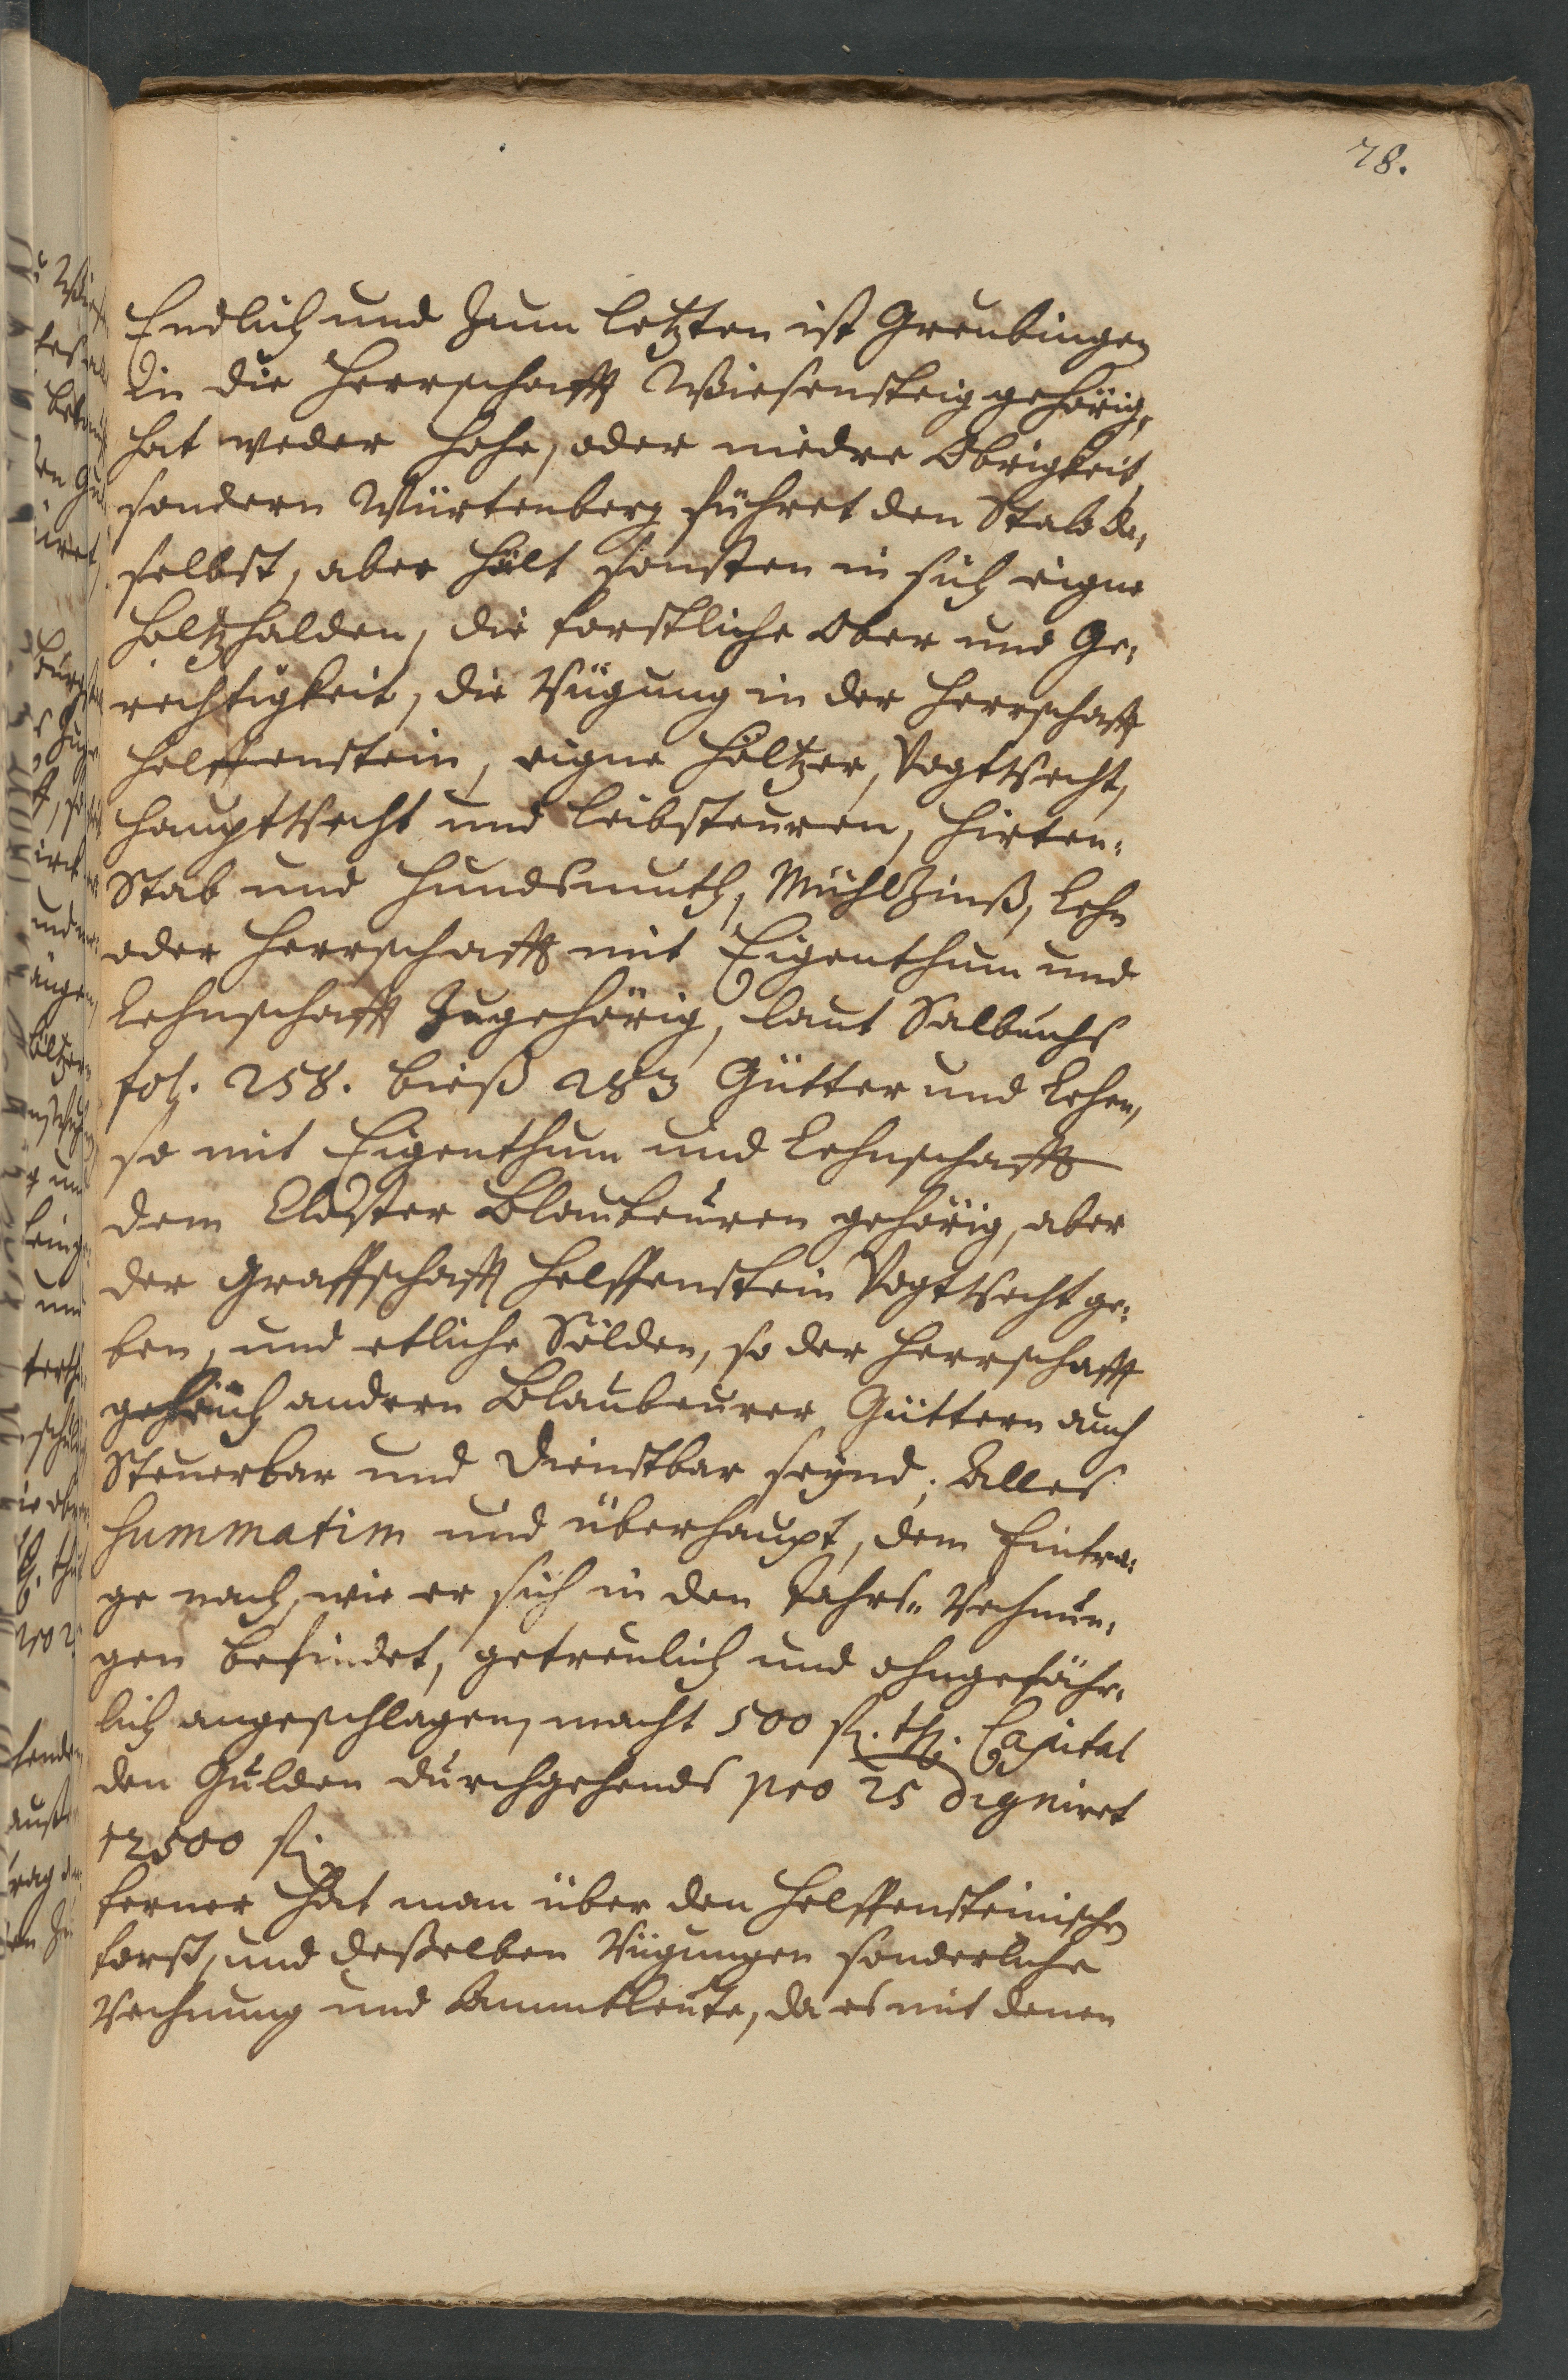 78.
Endlich und zum letzten ist Greubingen
in die Herrschafft Wiesensteig gehörig,
hat weder hohe, oder niedre Obrigkeit,
sondern Würtenberg führet den Stab da,
selbst, aber hält sonsten in sich eigne
Holtzhalden, die forstliche Ober und Ge,
rechtigkeit, die Nügung in der Herrschafft
Helffenstein, eigne Höltzer, Vogtrecht,
Hauptrecht und Leibsteuren, Hirten,
Stab und Hundsmuth, Mühlzinß, Lehn
oder Herrschafft mit Eigenthum und
Lehnschafft zugehörig, laut Salbuchs
fol. 258. bieß 283 Gütter und Lehen,
so mit Eigenthum und Lehnschafft
dem Closter Blaubeuren gehörig, aber
der Graffschafft Helffenstein Vogtrecht ge,
ben, und etliche Sölden, so der Herrschafft
gleich andern Blaubeurer Güttern auch
Steuerbar und Dienstbar seynd, Alles
summatim und überhaupt, dem Eintra,
ge nach, wie er sich in den Jahrs-Rechnun,
gen befindet, getreulich und ohngefähr,
lich angeschlagen, macht 500 fl. th. Capital
den Gulden durchgehends pro 25 digniret
12500 fl.
Ferner hat man über den Helffensteinischen
Forst, und deßelben Nügungen sonderliche
Rechnung und Ammtleute, da es mit denen